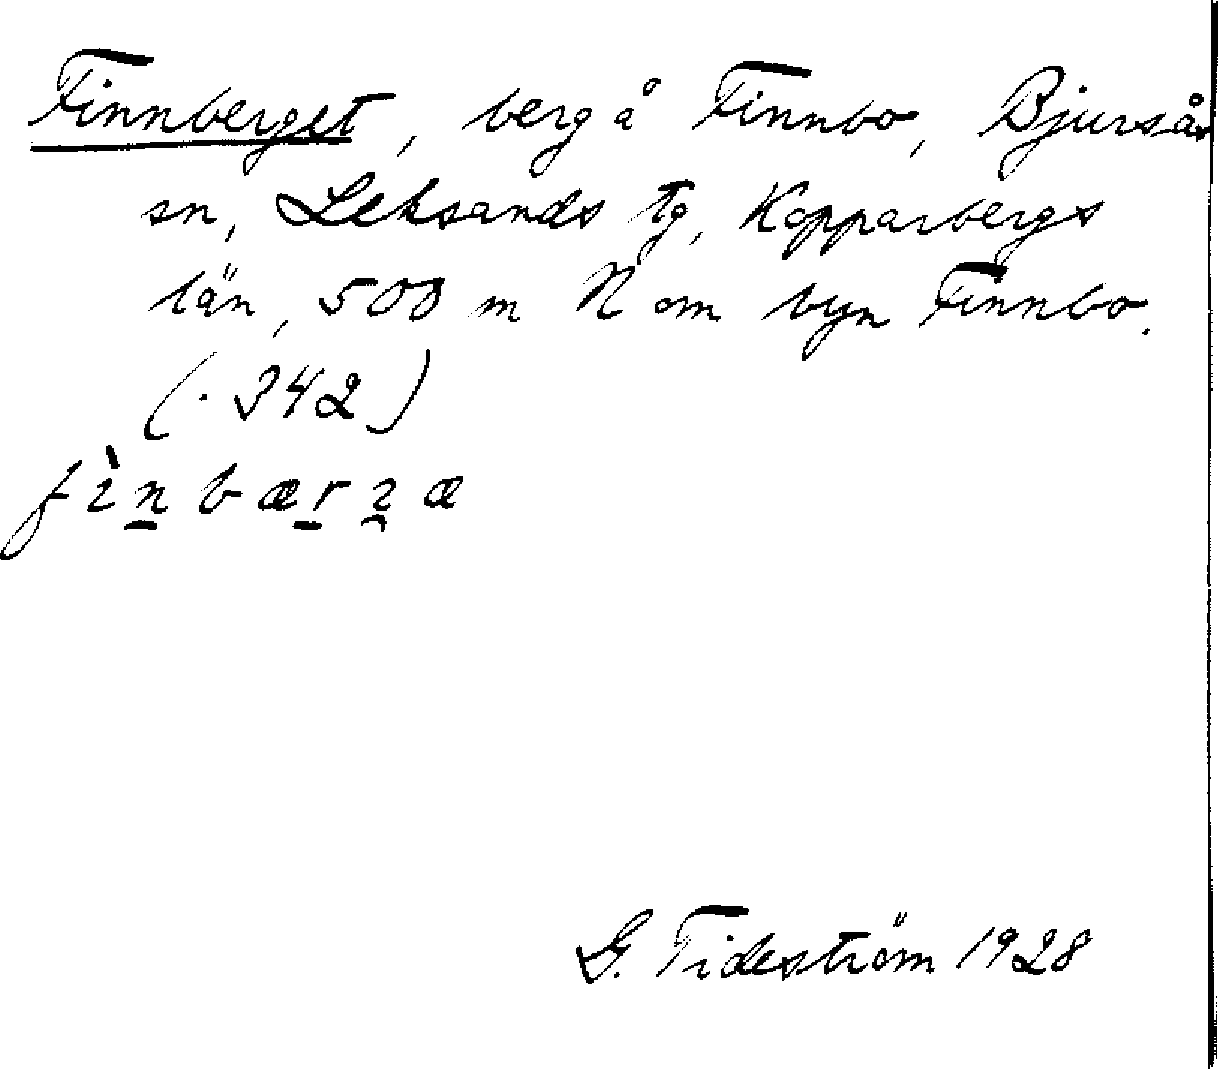 Finnberget, berg å Finnbo, Bjurså
sn, Leksands tg, Kopparbergs
län, 500 m N om byn Finnbo.
(. 342)
fìn̠bær̠ɀæ
G. Tideström 1928